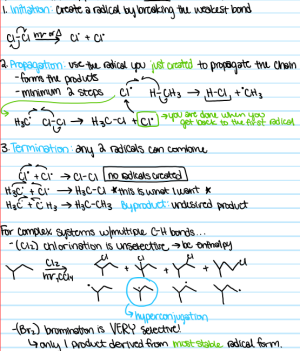 1. Initiation: create a radical by breaking the weakest bond
Cl-Cl hν or Δ Cl· + Cl·
2. Propagation: use the radical you just created to propagate the chain
-forms the products
-minimum 2 steps
Cl· H-CH₃ → H-Cl, + ·CH₃
H₃C· Cl-Cl → H₃C-Cl + Cl· → you are done when you
get back to the first radical
3. Termination: any 2 radicals can combine
Cl· + ·Cl → Cl-Cl no radicals created
H₃C· + Cl· → H₃C-Cl *this is what I want*
H₃C· + ·CH₃ → H₃C-CH₃ Byproduct: undesired product
For complex systems w/multiple C-H bonds...
-(Cl₂) chlorination is unselective → be
Cl₂
hν, CCl₄
Cl + Cl + Cl + Cl
hyperconjugation
-(Br₂) bromination is VERY selective!
↳ only 1 product derived from most stable radical form.